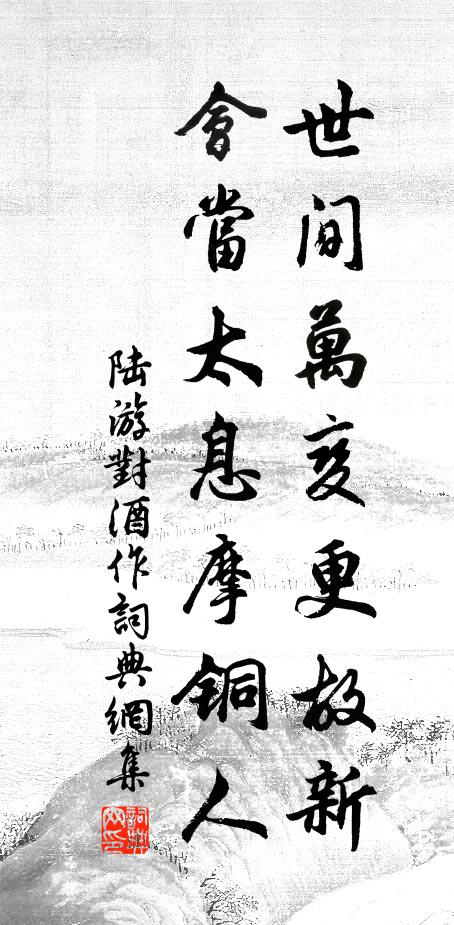 世間萬變更故新
會當太息摩銅人
陆游對酒作詞典網集